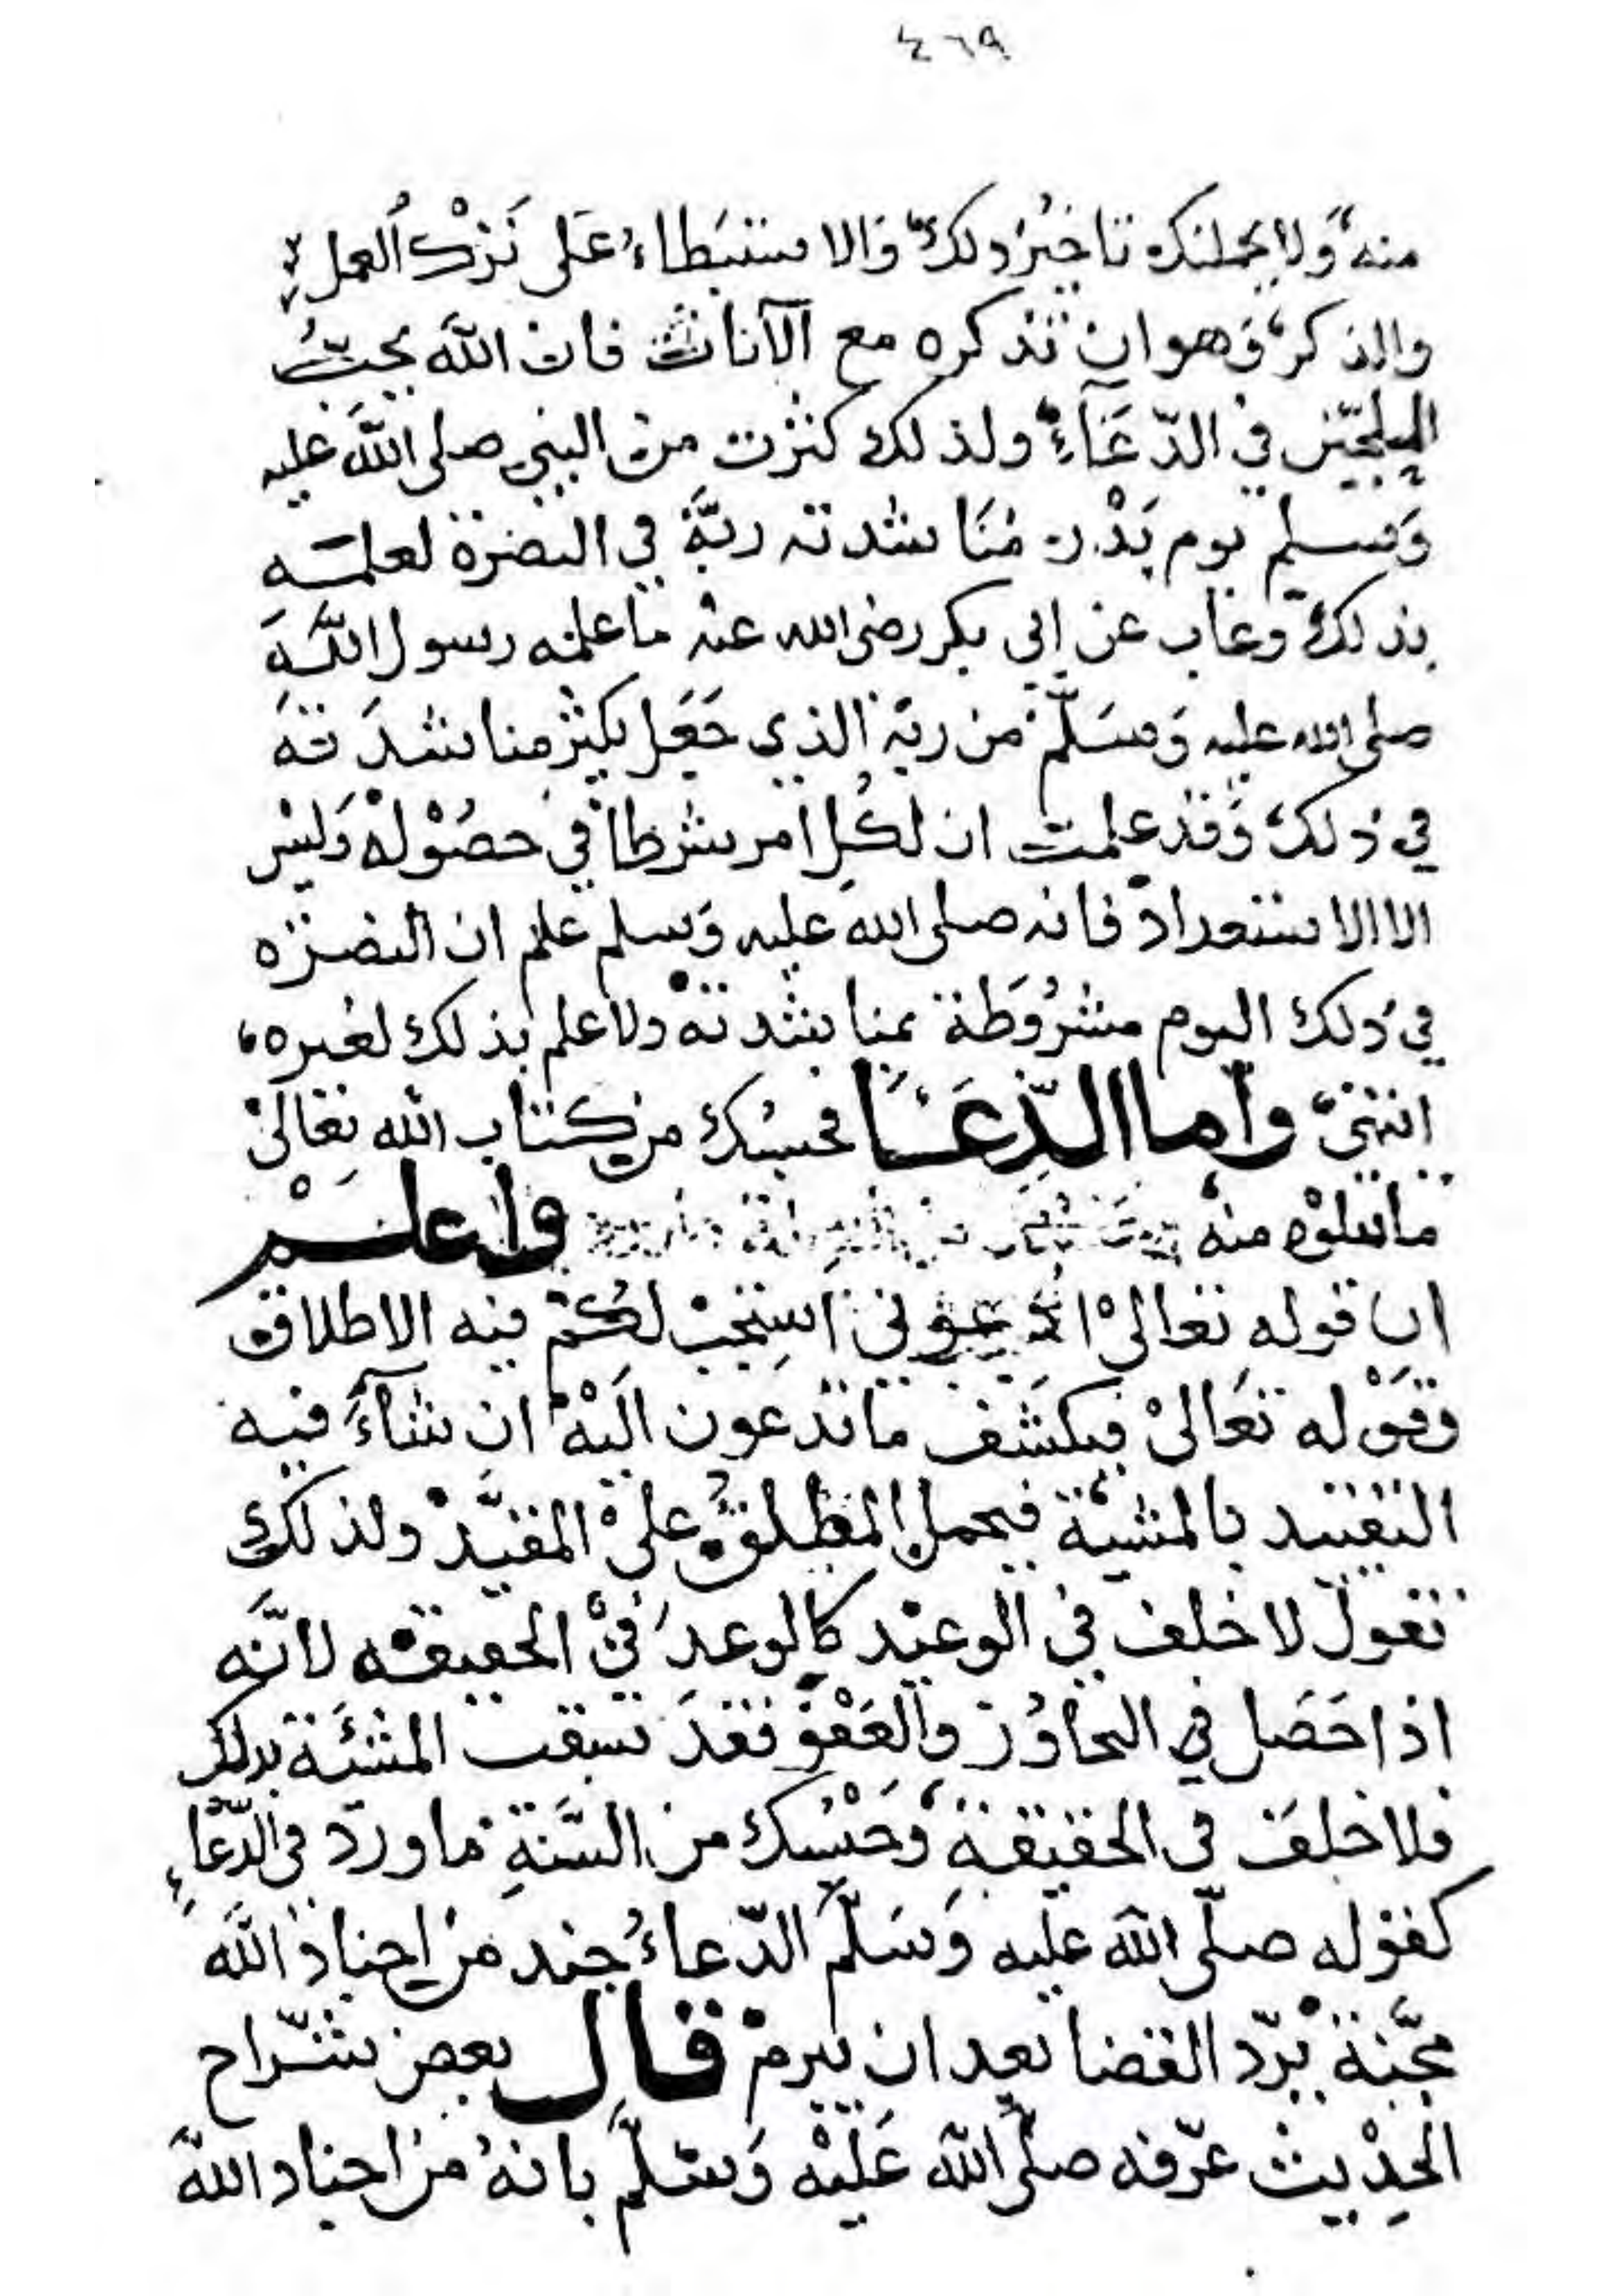 ٤٦٩
منه ولا يحملنك تاخير ذلك والاستبطاء على ترك العمل
والذكر وهو ان تذكره مع الآنات فان الله يحب
الملحين في الدعاء ولذلك كثرت من النبي صلى الله عليه
وسلم يوم بدر مناشدته ربه في النصرة لعلمه
بذلك وغاب عن ابي بكر رضى الله عنه ما علمه رسول الله
صلى الله عليه وسلم من ربه الذي جعل يكثر مناشدته
في ذلك وقد علمت ان لكل امر شرطا في حصوله وليس
الا الاستعداد فانه صلى الله عليه وسلم علم ان النصره
في ذلك اليوم مشروطة بمناشدته ولا علم بذلك لغيره
انتهى واما الدعا فحسبك من كتاب الله تعالى
ما تتلوه منه واعلم
ان قوله تعالى ادعوني استجب لكم فيه الاطلاق
وقوله تعالى فيكشف ما تدعون اليه ان شآء فيه
التقييد بالمشية فيحمل المطلق على المقيد ولذلك
نقول لا خلف في الوعيد كالوعد في الحقيقه لانه
اذا حصل في التجاوز والعفو فقد سبقت المشئة بذلك
فلا خلف في الحقيقة وحسبك من السنة ما ورد في الدعاء
كقوله صلى الله عليه وسلم الدعاء جند من اجناد الله
مجندة يرد القضا بعد ان يبرم قال بعض شراح
الحديث عرفه صلى الله عليه وسلم بانه من اجناد الله